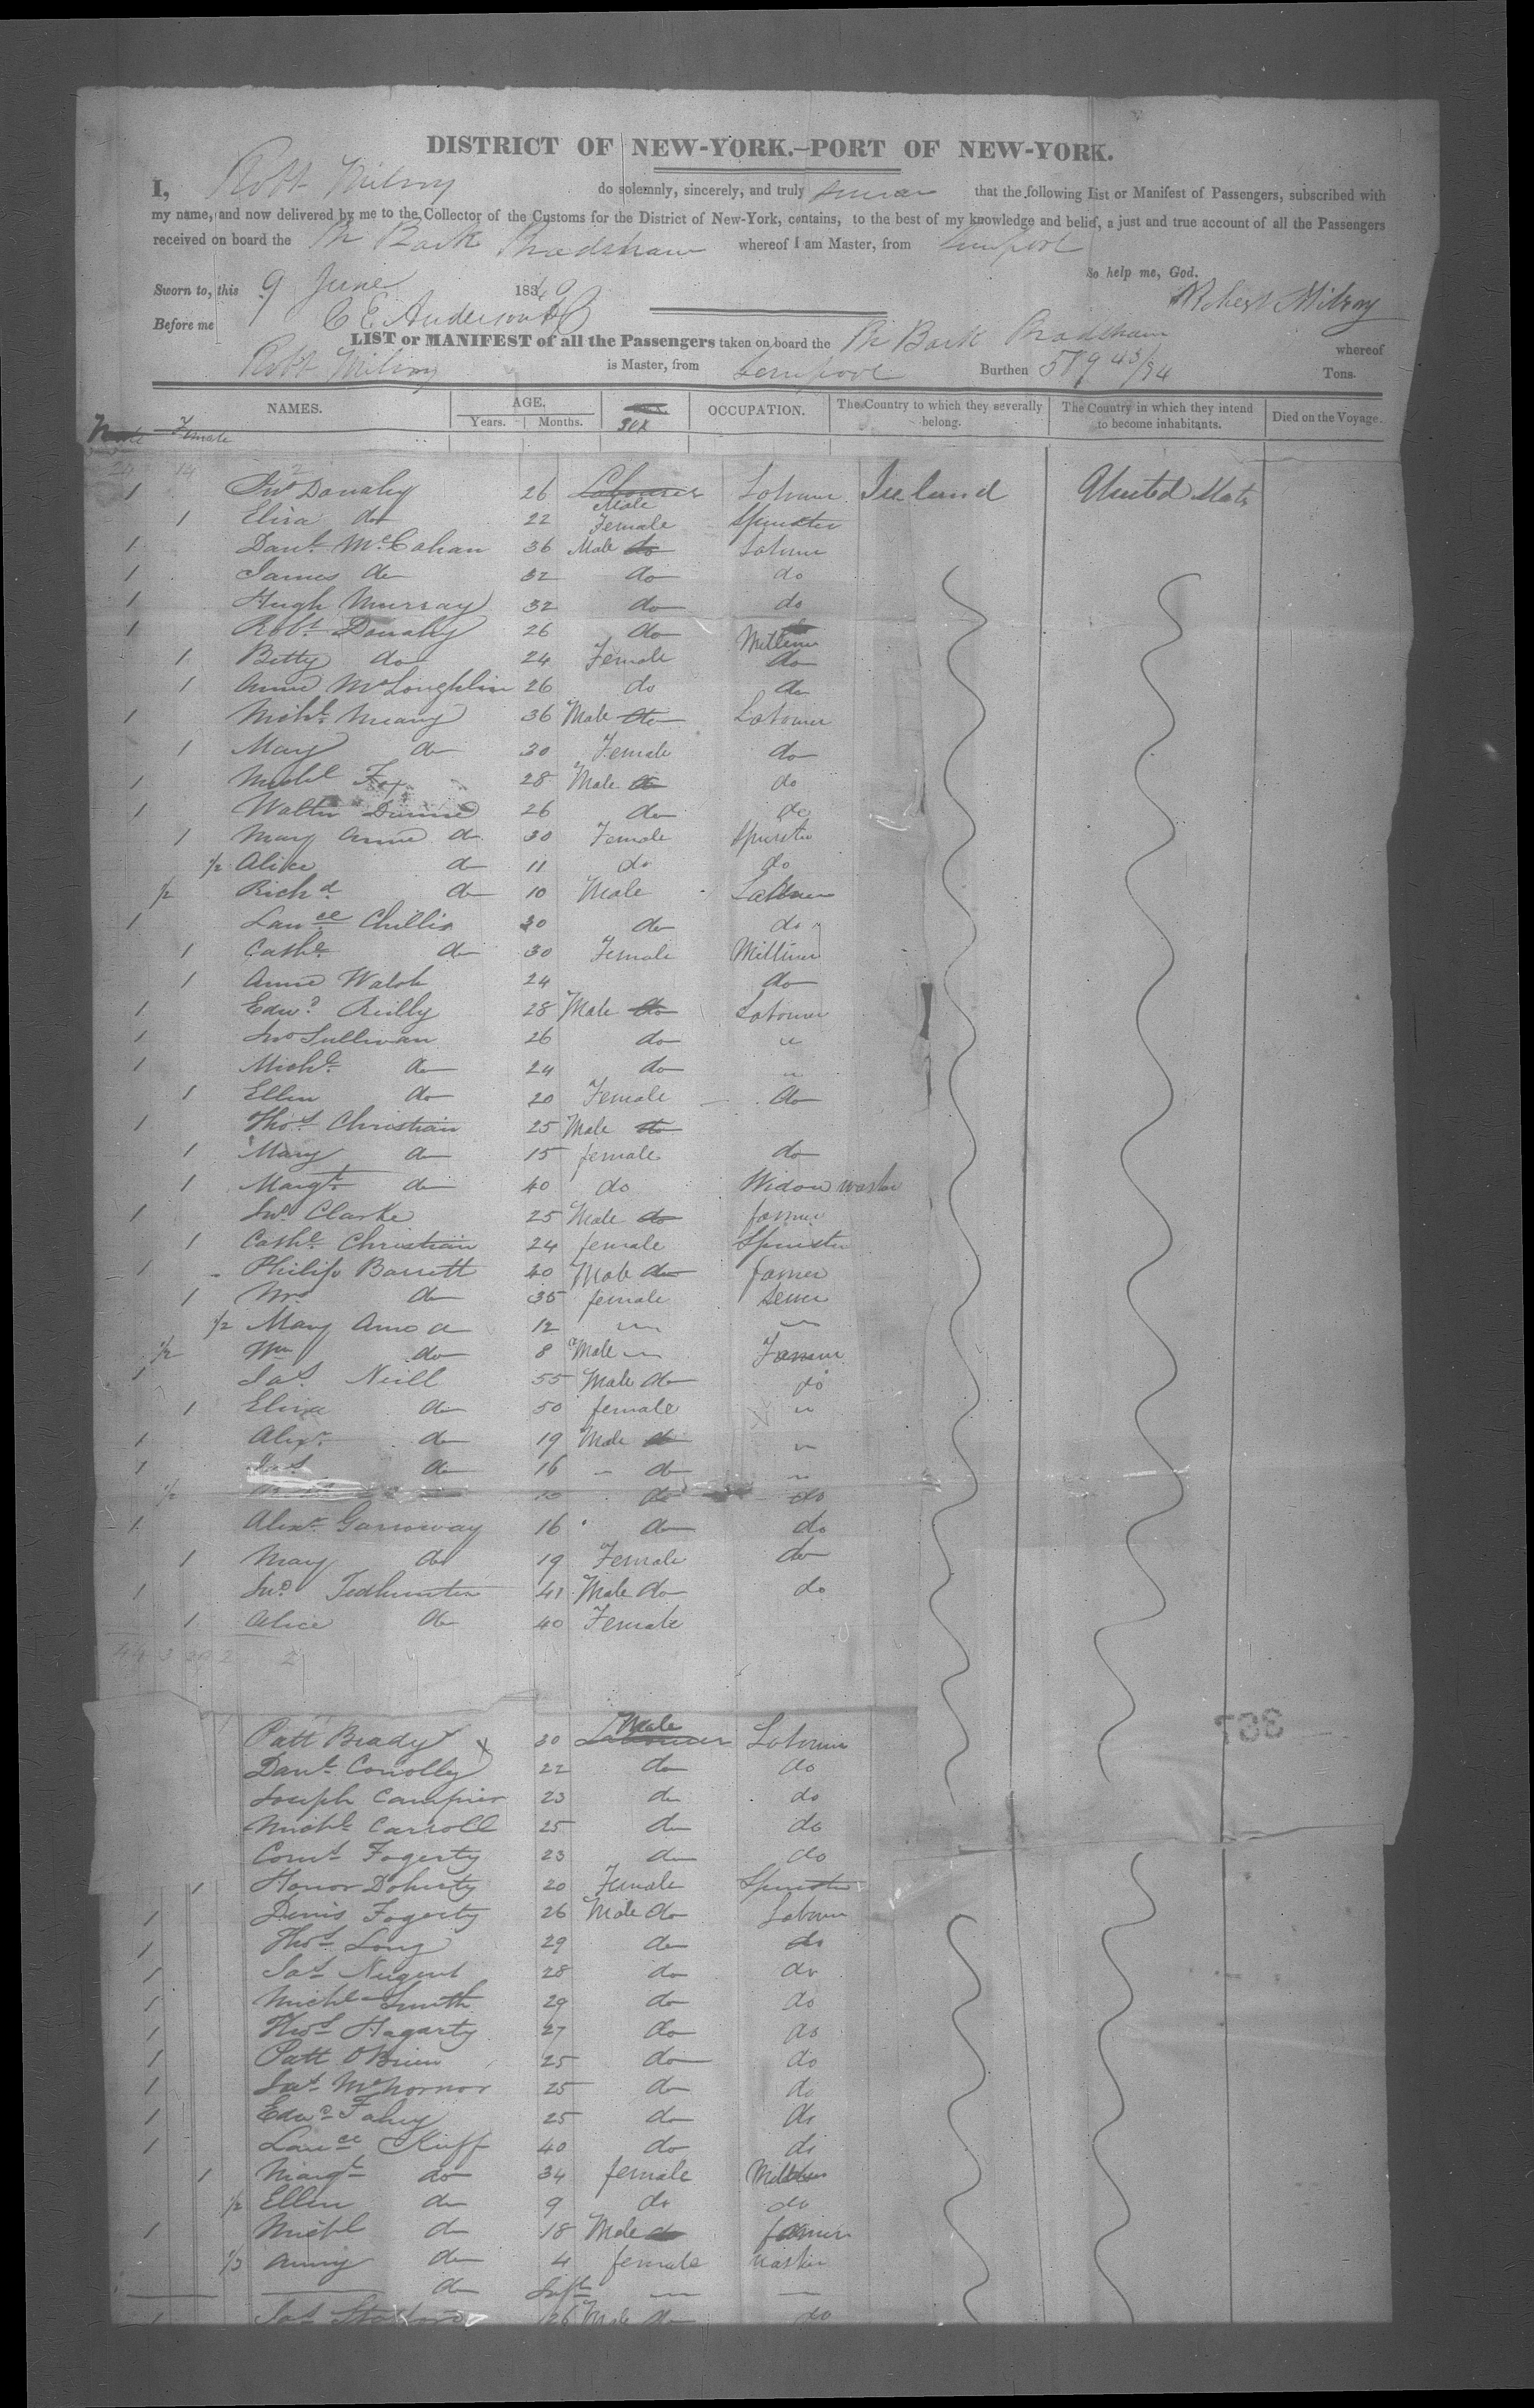 DISTRICT OF NEW-YORK.—PORT OF NEW-YORK.
I, Robt Milroy do solemnly, sincerely, and truly swear that the following List or Manifest of Passengers, subscribed with
my name, and now delivered by me to the Collector of the Customs for the District of New-York, contains, to the best of my knowledge and belief, a just and true account of all the Passengers
received on board the Br Bark Bradshaw whereof I am Master, from Liverpool
So help me, God.
Sworn to, this 9 June 183 Robert Milroy
Before me C E Anderson
LIST or MANIFEST of all the Passengers taken on board the Br Bark Bradshaw whereof
Robt Milroy is Master, from Liverpool Burthen 579 43/94 Tons.
NAMES. AGE. Years. Months. Sex OCCUPATION. The Country to which they severally belong. The Country in which they intend to become inhabitants. Died on the Voyage.
Male Female
1 Jno Danahy 26 Labourer Male Labourer Ireland United States
1 Eliza do 22 Female Spinster
1 Danl McCahan 36 Male do Labourer
1 James do 32 do do
1 Hugh Murray 32 do do
1 Robt Danahy 26 do
1 Betty do 24 Female Milliner do
1 Anne McLoughlin 26 do do
1 Michl Meany 36 Male do Labourer
1 Mary do 30 Female do
1 Michl Fox 28 Male do do
1 Walter Dunne 26 do do
1 Mary Anne do 30 Female Spinster
1/2 Alice do 11 do do
1/2 Richd do 10 Male Labourer
1 Lawce Chillis 30 do do
1 Cathe do 30 Female Milliner
1 Anne Walsh 24 do
1 Edwd Reilly 28 Male do Labourer
1 Jno Sullivan 26 do "
1 Michl do 24 do "
1 Ellen do 20 Female do
1 Thos Christian 25 Male do
1 Mary do 15 female do
1 Margt do 40 do Widow washer
1 Jno Clarke 25 Male do farmer
1 Cathe Christian 24 female Spinster
1 Philip Barrett 40 Male do farmer
1 Mrs do 35 female Sewer
1/2 Mary Anne do 12 " "
1/2 Wm do 8 Male " Farmer
1 Jas Neill 55 Male do do
1 Eliza do 50 female "
1 Alexr do 19 Male do "
1 Jas do 16 do "
1/2 do 10 do do
1 Alexr Garroway 16 do do
1 Mary do 19 Female do
1 Jno Tedhunter 41 Male do do
1 Alice do 40 Female
Patt Brady 30 Labourer Male Labourer
Danl Conolly 22 do do
Joseph Campier 23 do do
Michl Carroll 25 do do
Corns Fogerty 23 do do
1 Honor Doherty 20 Female Spinster
1 Denis Fogerty 26 Male do Labourer
1 Thos Long 29 do do
1 Jas Nugent 28 do do
1 Michl Smith 29 do do
1 Thos Hagarty 27 do do
1 Patt OBrien 25 do do
1 Jas McNornor 25 do do
1 Edwd Fahey 25 do do
1 Lawce Kuff 40 do do
1 Margt do 34 female Milliner
1/2 Ellen do 9 do do
1 Michl do 18 Male do farmer
1/3 Anny do 4 female washer
do Inft
1 Jas 26 Male do do
387